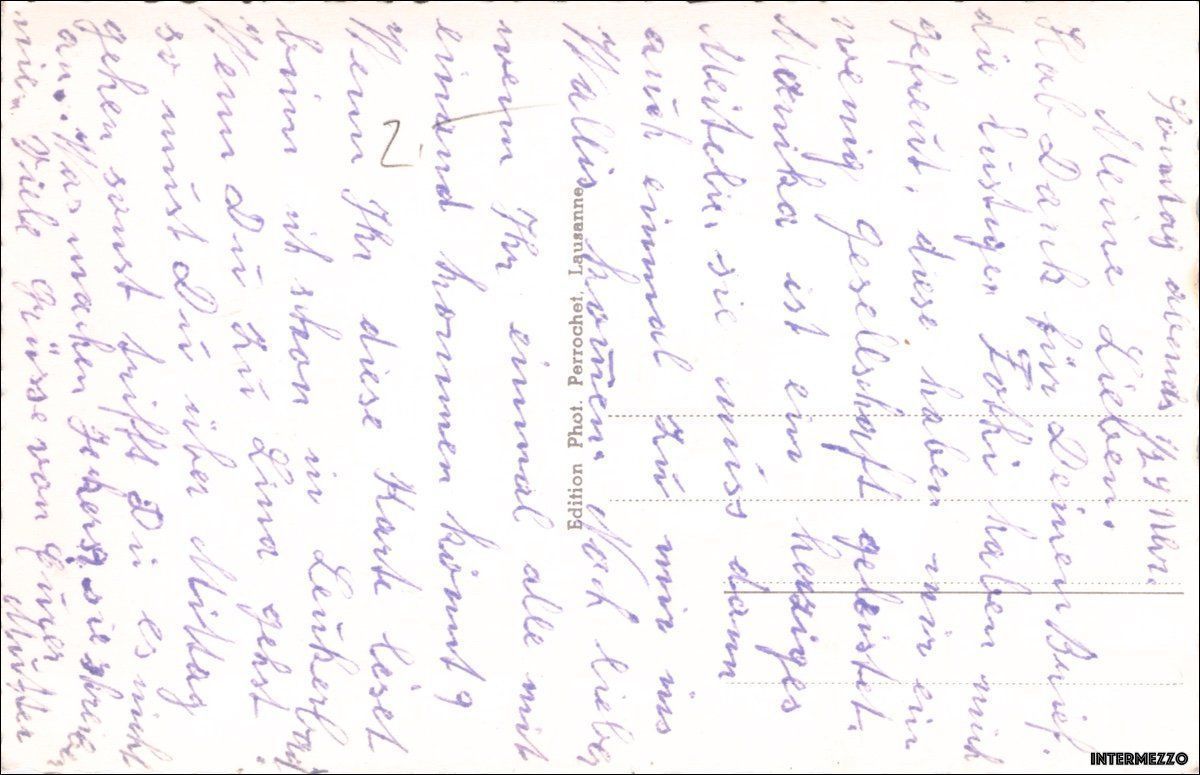 Sonntag abends ½ 9 Uhr.
Meine Lieben!
Hab Dank für Deinen Brief.
die lustigen Fothi haben mich
gefreut, diese haben mir ein
wenig Gesellschaft geleistet.
Marika ist ein herziges
Meiteli, sie müss dann
auch einmal zu mir ins
Wallis kommen. Noch lieber
wenn Ihr einmal alle mit
einand kommen könnt
Wenn Ihr diese Karte leset
bin ich schon in Leukerbad
Wenn Du zu Lina gehst
so must Du über Mittag
gehen sonst triffst Du es nicht
an. Was machen sie
nie. Viele Grüsse von Eurer
Mutter
2.
Edition Phot. Perrochet, Lausanne
INTERMEZZO